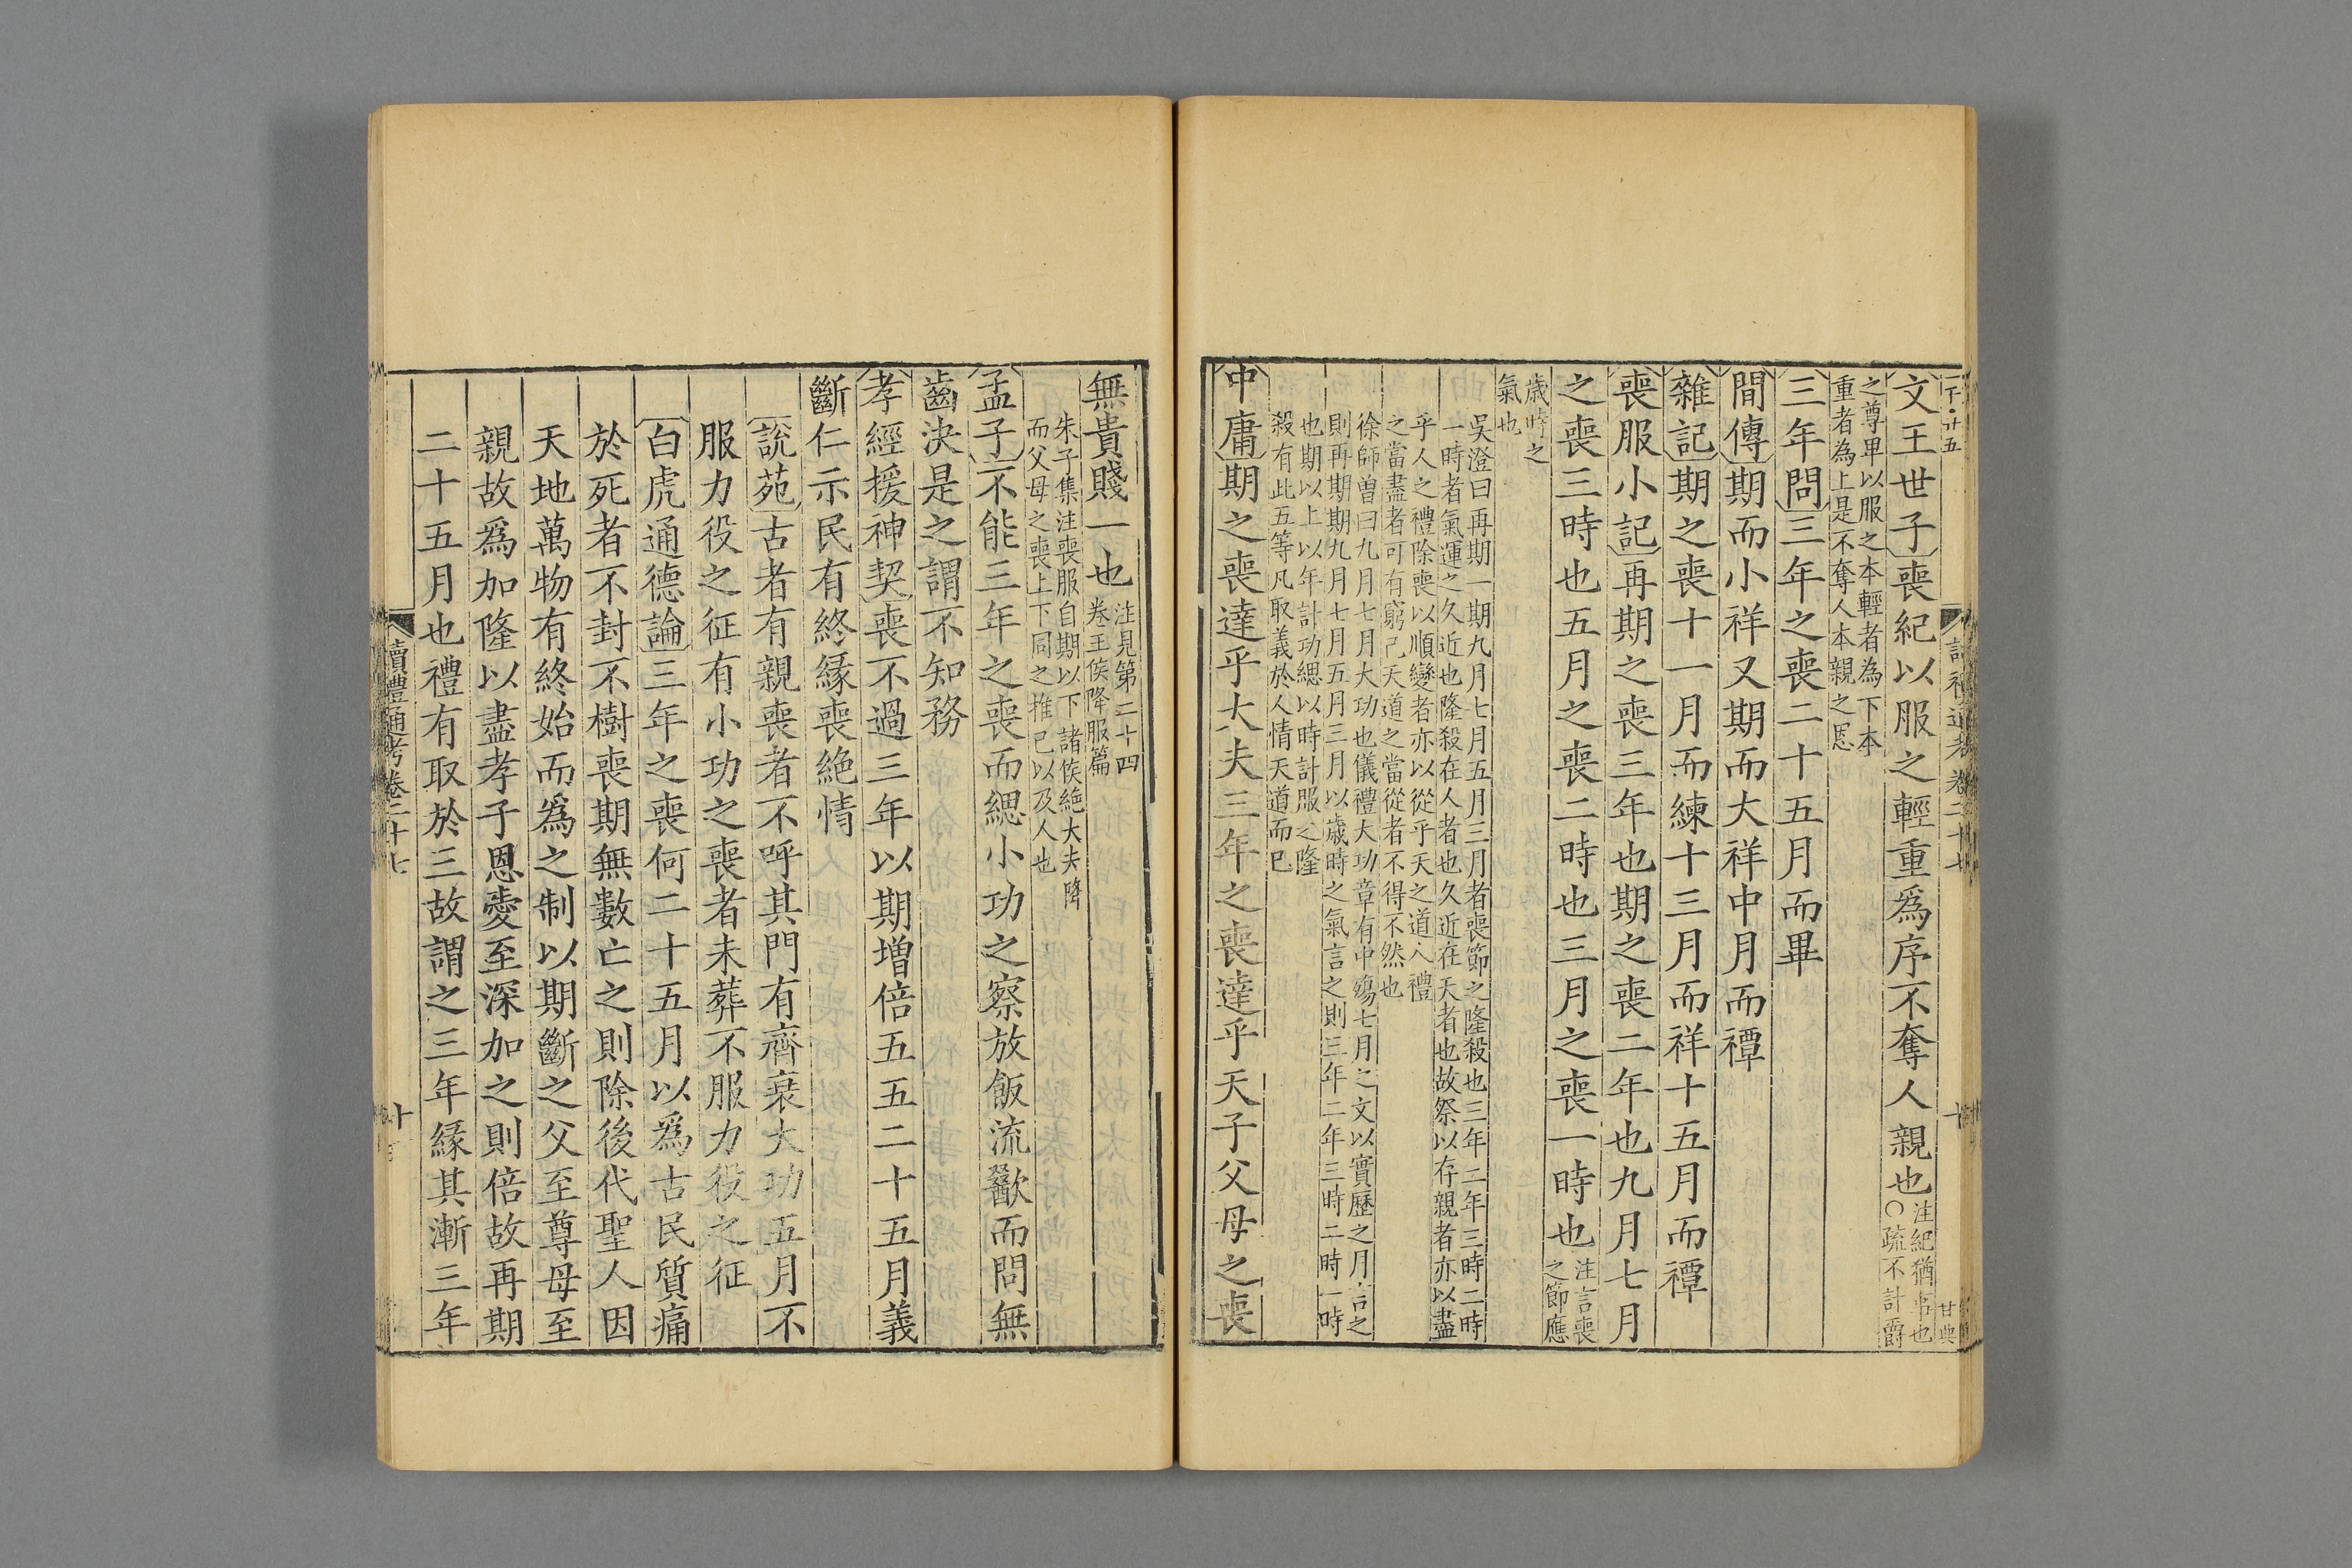 文王世子喪紀以服之輕重爲序不奪人親也注紀猶事也○疏不計爵
之尊卑以服之本輕者為下本
重者為上是不奪人本親之恩
三年問三年之喪二十五月而畢
間傳期而小祥又期而大祥中月而禫
雜記期之喪十一月而練十三月而祥十五月而禫
喪服小記再期之喪三年也期之喪二年也九月七月
之喪三時也五月之喪二時也三月之喪一時也注言喪之節應
歲時之
氣也
吳澄曰再期一期九月七月五月三月者喪節之隆殺也三年二年三時二時
一時者氣運之久近也隆殺在人者也久近在天者也故祭以存親者亦以盡
乎人之禮除喪以順變者亦以從乎天之道人禮
之當盡者可有窮已天道之當從者不得不然也
徐師曾曰九月七月大功也儀禮大功章有中殤七月之文以實歷之月言之
則再期期九月七月五月三月以歲時之氣言之則三年二年三時二時一時
也期以上以年計功緦以時計服之隆
殺有此五等凡取義於人情天道而已
中庸期之喪達乎大夫三年之喪達乎天子父母之喪
無貴賤一也注見第二十四卷王侯降服篇
朱子集注喪服自期以下諸侯絶大夫降
而父母之喪上下同之推己以及人也
孟子不能三年之喪而緦小功之察放飯流歠而問無
齒決是之謂不知務
孝經援神契喪不過三年以期增倍五五二十五月義
斷仁示民有終緣喪絶情
說苑古者有親喪者不呼其門有齊衰大功五月不
服力役之征有小功之喪者未葬不服力役之征
白虎通德論三年之喪何二十五月以爲古民質痛
於死者不封不樹喪期無數亡之則除後代聖人因
天地萬物有終始而爲之制以期斷之父至尊母至
親故爲加隆以盡孝子恩愛至深加之則倍故再期
二十五月也禮有取於三故謂之三年緣其漸三年
讀禮通考卷二十七
十